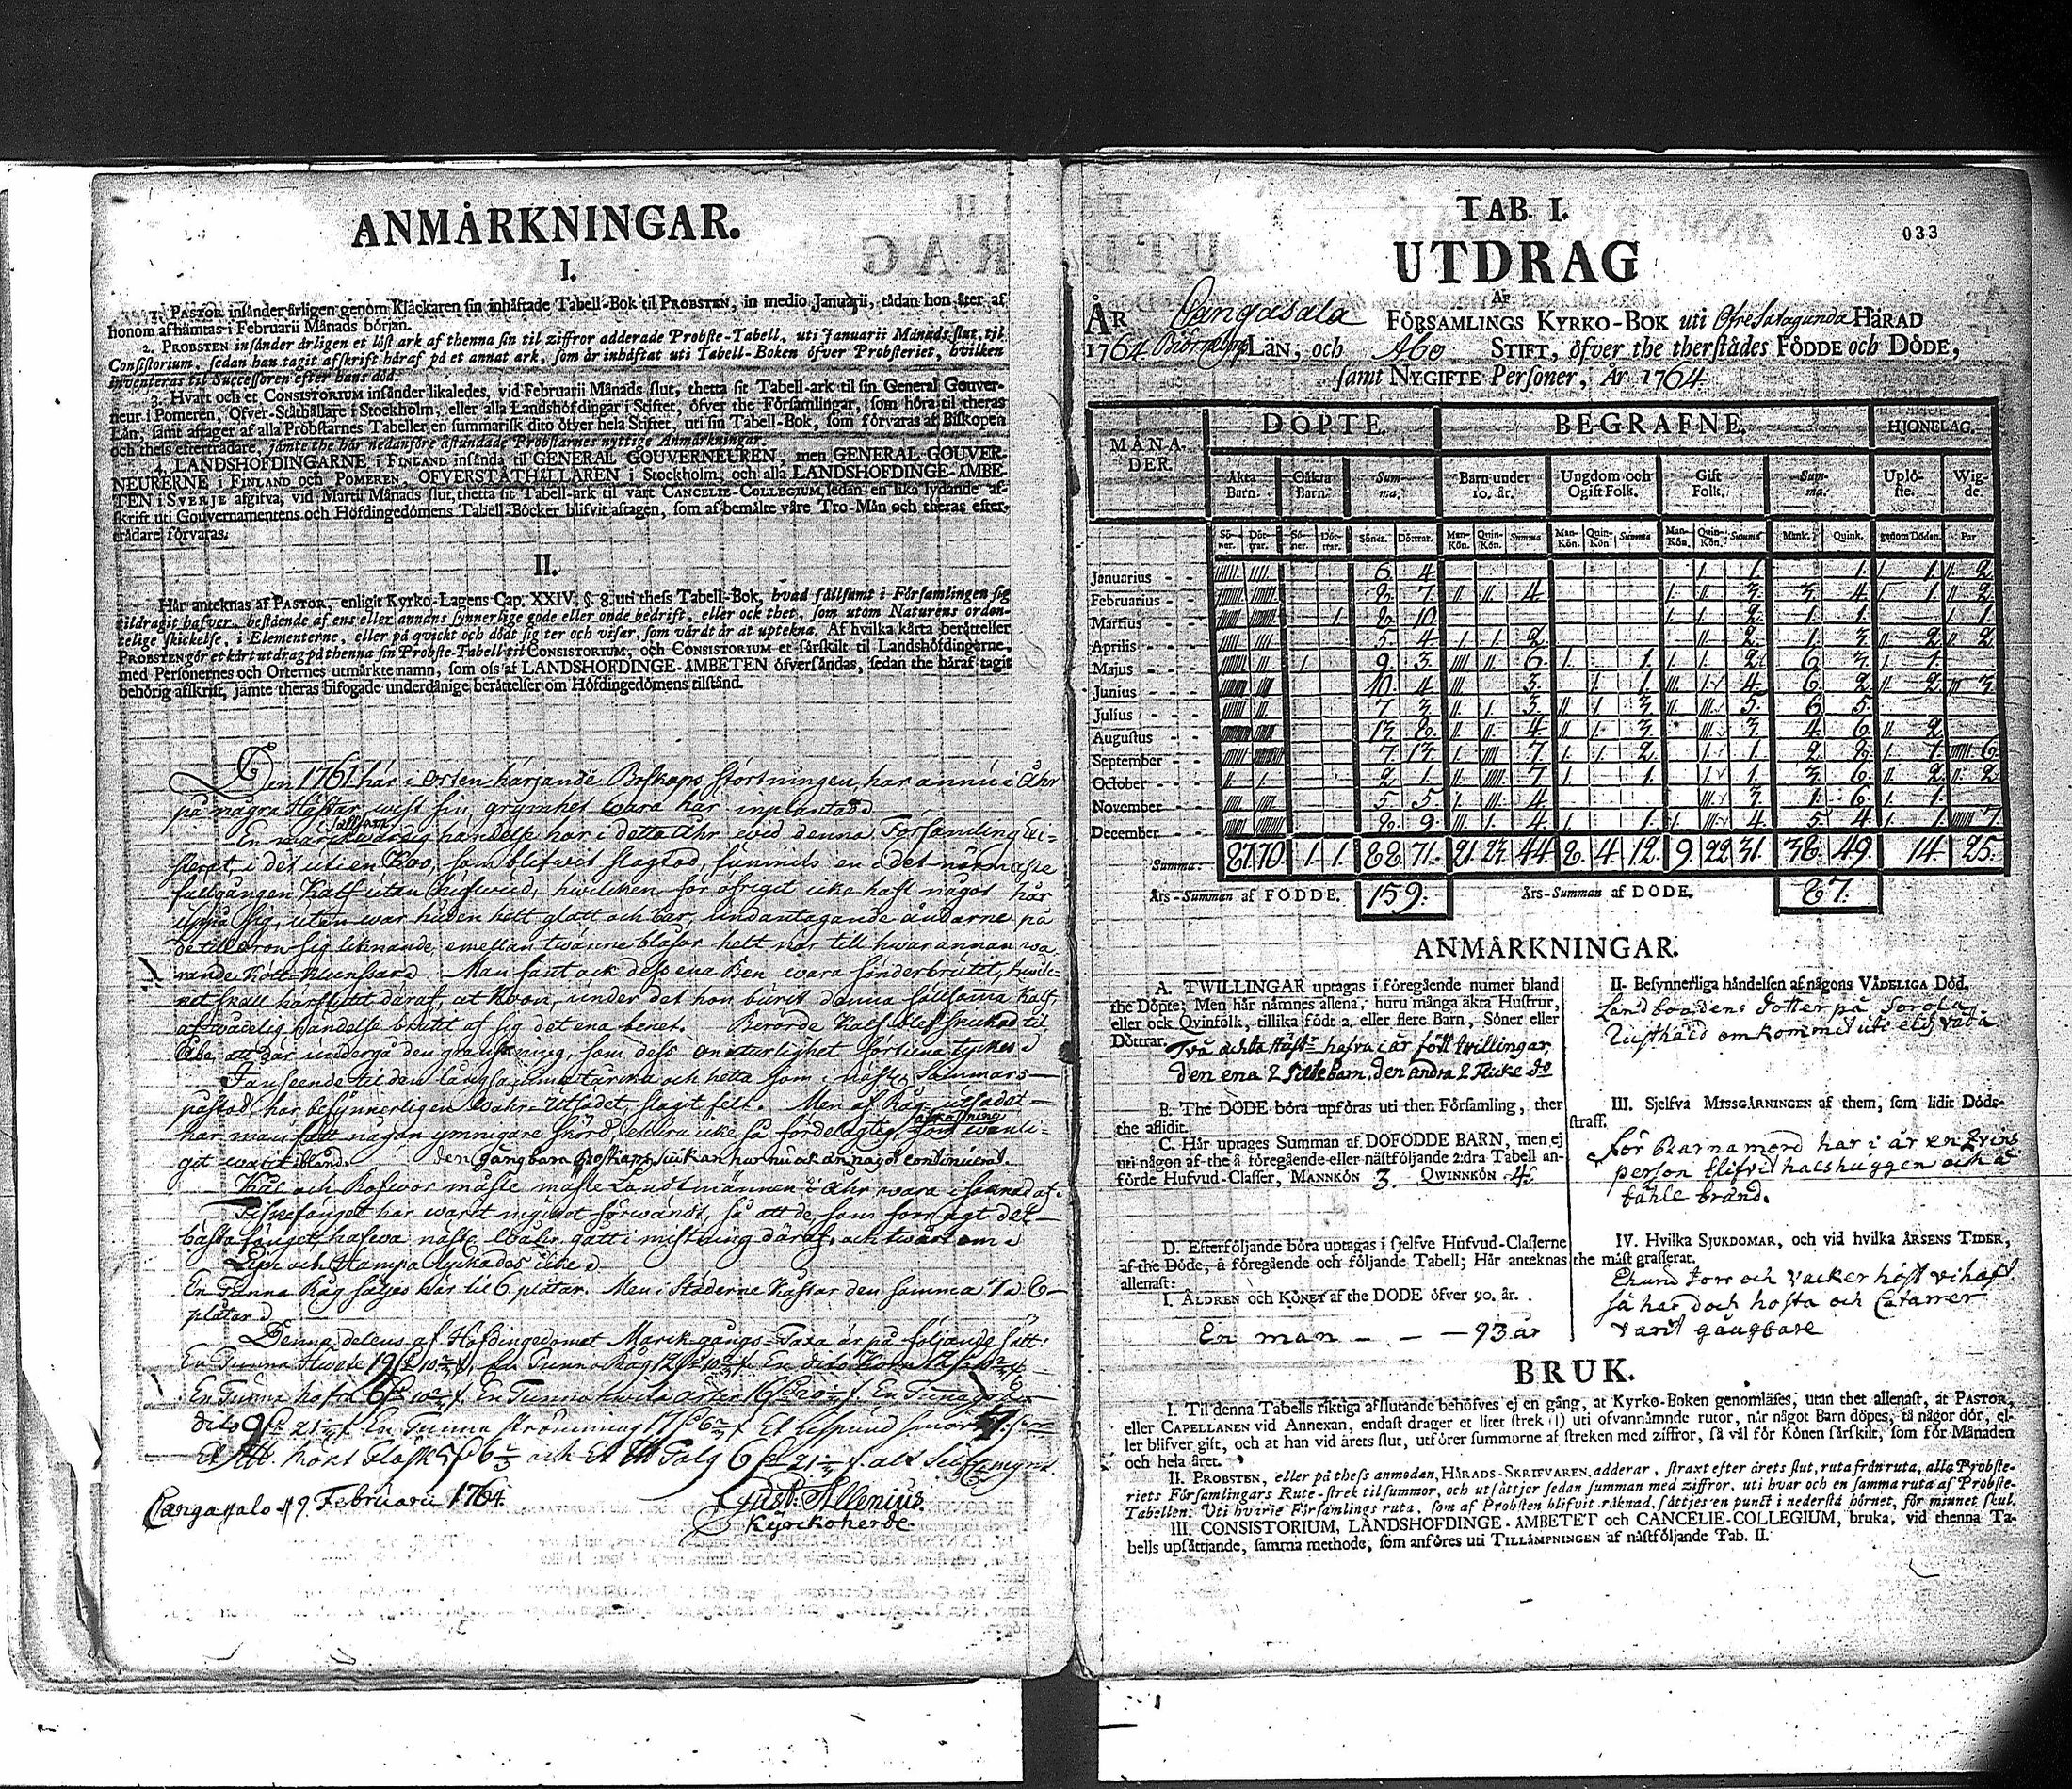 ANMÄRKNINGAR.
I.
1. PASTOR insänder årligen genom Klåckaren sin inhäftade Tabell-Bok til PROBSTEN, in medio Januarii, tådan hon åter af
honom afhämtas i Februarii Månads början.
2. PROBSTEN insänder årligen et löst ark af thenna sin til ziffror adderade Probste-Tabell, uti Januarii Månads slut, til
Consistorium, sedan han tagit afskrift häraf på et annat ark, som är inhäftat uti Tabell-Boken öfver Probsteriet, hvilken
inventeras til Successoren efter hans död.
3. Hvart och et CONSISTORIUM insänder likaledes, vid Februarii Månads slut, thetta sit Tabell-ark til sin General Gouver-
neur i Pomeren, Öfver-Ståthållare i Stockholm, eller alla Landshöfdingar i Stiftet, öfver the Församlingar, som höra til theras
Län, samt aftaget af alla Probstarnes Tabeller en summarisk dito öfver hela Stiftet, uti sin Tabell-Bok, som förvaras af Biskopen
och theis efterträdare, jämte the här nedanföre åstundade Probstarnes nyttige Anmärkningar.
4. LANDSHÖFDINGARNE i FINLAND insända til GENERAL GOUVERNEUREN, men GENERAL GOUVER-
NEURERNE i FINLAND och POMEREN, ÖFVERSTÅTHÅLLAREN i Stockholm, och alla LANDSHÖFDINGE-ÄMBE-
TEN i SVERJE afgifva, vid Martii Månads slut, thetta sit Tabell-ark til vårt CANCELIE-COLLEGIUM, sedan en lika lydande af-
skrift uti Gouvernamentens och Höfdingedömens Tabell-Böcker blifvit aftagen, som af bemälte våre Tro-Män och theras efter-
trädare förvaras.
II.
Här anteknas af PASTOR, enligit Kyrko-Lagens Cap. XXIV. §. 8. uti thess Tabell-Bok, hvad sällsamt i Församlingen sig
tildragit hafver, bestående af ens eller annans synnerlige gode eller onde bedrift, eller ock thet, som utom Naturens orden-
telige skickelse, i Elementerne, eller på qvickt och dödt sig ter och visar, som värdt är at uptekna. Af hvilka kårta berättelser
PROBSTEN gör et kårt utdrag på thenna sin Probste-Tabell til CONSISTORIUM, och CONSISTORIUM et särskilt til Landshöfdingarne,
med Personernes och Orternes utmärkte namn, som oss af LANDSHÖFDINGE-ÄMBETEN öfversändas, sedan the häraf tagit
behörig afskrift, jämte theras bifogade underdånige berättelser om Höfdingedömens tilstånd.
Den 1761 här i orten härjande Boskaps störtningen, har ännu i Åhr
på några Hästar wist sin grymhet wara här inplantad.
En märckwärdig sällsam händelse har i detta Åhr wid denna Församling exi-
sterat, i det uti en Koo, som blifwit slagtad, funnits en det närmaste
fullgången Kalf utan hufwud, hwilcken för öfrigit icke haft något hår
uppå sig, utan war huden helt glatt och bar, undantagande ändarne på
de till öron sig liknande, emellan twänne blåsor helt när till hwarannan wa-
rande Kött-klenssar. Man fant ock dess ena Ben wara sönderbrutit, hwil-
ket skall härflutit däraf, at Koon, under det hon burit denna sällsama Kalf,
af wådelig händelse brutit af sig det ena benet. Berörde Kalf blef skickad til
Åbo, att där undergå den granskning, som dess onaturlighet förtiena tycktes.
I anseende til den långsamma tårcka och hetta som i näst Sommar
påstod, har besynnerligen wåhr-Utsädet slagit felt. Men af Råg utsädet
har man fått någon ymnigare skörd, ehuru icke så fördelagtig som wanli-
git warit ibland. Den gångbara Boskaps siukan har nu ock än något continuerat.
Kåhl och Rofwor måste måste Landtmännen i Åhr wara i saknad af.
Fiskefånget har warit något förwändt, så att de, som förr ägt det
bästa fånget, hafwa näst wåhr gått i mistning däraf, och twärt om.
Lijn och Hampa lyckades icke.
En Tunna Råg säljes här til 6 plåtar. Men i Städerne kåstar den samma 7 a 8
plåtar.
Denna delens af Höfdingedömet Marck-gångs-Taxa är på följande sätt:
Cangasalo d. 9 Februarii 1764.
Gust. Allenius.
Kyrckoherde.
033
TAB. I.
UTDRAG
AF
ÅR Cangasala FÖRSAMLINGS KYRKO-BOK uti Öfre Satagunda HÄRAD
1764 Biörneb LÄN, och Åbo STIFT, öfver the therstädes FÖDDE och DÖDE,
samt NYGIFTE Personer, År 1764.
MÅNADER. DÖPTE. BEGRAFNE. HJONELAG.
Äkta Barn. Oäkta Barn. Summa. Barn under 10. år. Ungdom och Ogift Folk. Gift Folk. Summa. Uplöste. Wigde.
Söner. Döttrar. Söner. Döttrar. Söner. Döttrar. Mankön. Quinkön. Summa Mankön. Quinkön. Summa Mankön. Quinkön. Summa Mank. Quink. genom Döden. Par
Januarius - - 6. 4 1. 1. 1. 1. 1. 2.
Februarius - - 8. 7 4 3. 3. 4. 1. 2.
Martius - - 1 8. 10 1. 1. 2. 1. 1. 1.
Aprilis - - 5. 4. 1. 1. 2 2. 1. 3. 2. 2.
Majus - - 1. 9. 3 6. 1. 1. 1. 1. 2. 6. 3. 1. 1.
Junius - - 10. 4 3. 1. 1. 4. 6. 2. 2. 3
Julius - - 7 3 1. 3. 1. 3 5. 6. 5.
Augustus - - 13. 8. 4. 1. 3 3 4. 6. 2.
September - - 7. 13. 1. 7. 1. 1. 2. 1. 1. 2. 8. 1. 1. 6.
October - - 2. 1. 7. 1. 1. 1. 3. 6. 2. 2
November - - 5. 5. 1. 4. 3. 1. 6. 1. 1.
December - - 8. 9 1. 4. 1. 1. 1. 4. 5. 4. 1. 1. 7.
Summa: 87. 70. 1. 1. 88. 71. 21. 23. 44. 8. 4. 12. 9. 22. 31. 38. 49. 14. 25.
Års-Summan af FÖDDE. 159. Års-Summan af DÖDE. 87.
ANMÄRKNINGAR.
A. TWILLINGAR uptagas i föregående numer bland
the Döpte; Men här nämnes allena, huru många äkta Hustrur,
eller ock Qvinfolk, tillika födt 2. eller flere Barn, Söner eller
Döttrar. Två ächta Hustr. hafva i år födt tvillingar,
den ena 2 Gillebarn, den andra 2 Flicke do
B. The DÖDE böra upföras uti then Församling, ther
the aflidit.
C. Här uptages Summan af DÖFÖDDE BARN, men ej
uti någon af the å föregående eller nästföljande 2:dra Tabell an-
förde Hufvud-Classer, MANNKÖN 3. QWINNKÖN 4.
D. Efterföljande böra uptagas i sjelfve Hufvud-Classerne
af the Döde, å föregående och följande Tabell; Här anteknas
allenast:
I. ÅLDREN och KÖNET af the DÖDE öfver 90. år.
En man - - - 93 år
II. Besynnerliga händelsen af någons VÅDELIGA DÖD.
Landbondens dotter på Sorola
Rusthåld omkommit uti elds våda
III. Sjelfva MISSGÄRNINGEN af them, som lidit Döds-
straff.
för Barnamord har i år en Qvins
person blifvit halshuggen och å
båhle bränd.
IV. Hvilka SJUKDOMAR, och vid hvilka ÅRSENS TIDER,
the mäst grasserat.
Ehuru torr och vacker höst vi haft
så har doch hosta och Catarrer
varit gångbare
BRUK.
I. Til denna Tabells riktiga afslutande behöfves ej en gång, at Kyrko-Boken genomläses, utan thet allenast, at PASTOR,
eller CAPELLANEN vid Annexan, endast drager et litet strek (1) uti ofvannämnde rutor, när något Barn döpes, tå någor dör, el-
ler blifver gift, och at han vid årets slut, utförer summorne af streken med ziffror, så väl för Könen särskilt, som för Månaden
och hela året.
II. PROBSTEN, eller på thess anmodan, HÄRADS-SKRIFVAREN, adderar, straxt efter årets slut, ruta från ruta, alla Probste-
riets Församlingars Rute-strek til summor, och utsättjer sedan summan med ziffror, uti hvar och en samma ruta af Probste-
Tabellen. Uti hvarje Församlings ruta, som af Probsten blifvit räknad, sättjes en punct i nedersta hörnet, för minnet skul.
III. CONSISTORIUM, LANDSHÖFDINGE-ÄMBETET och CANCELIE-COLLEGIUM, bruka, vid thenna Ta-
bells upsättjande, samma methode, som anföres uti TILLÄMPNINGEN af nästföljande Tab. II.